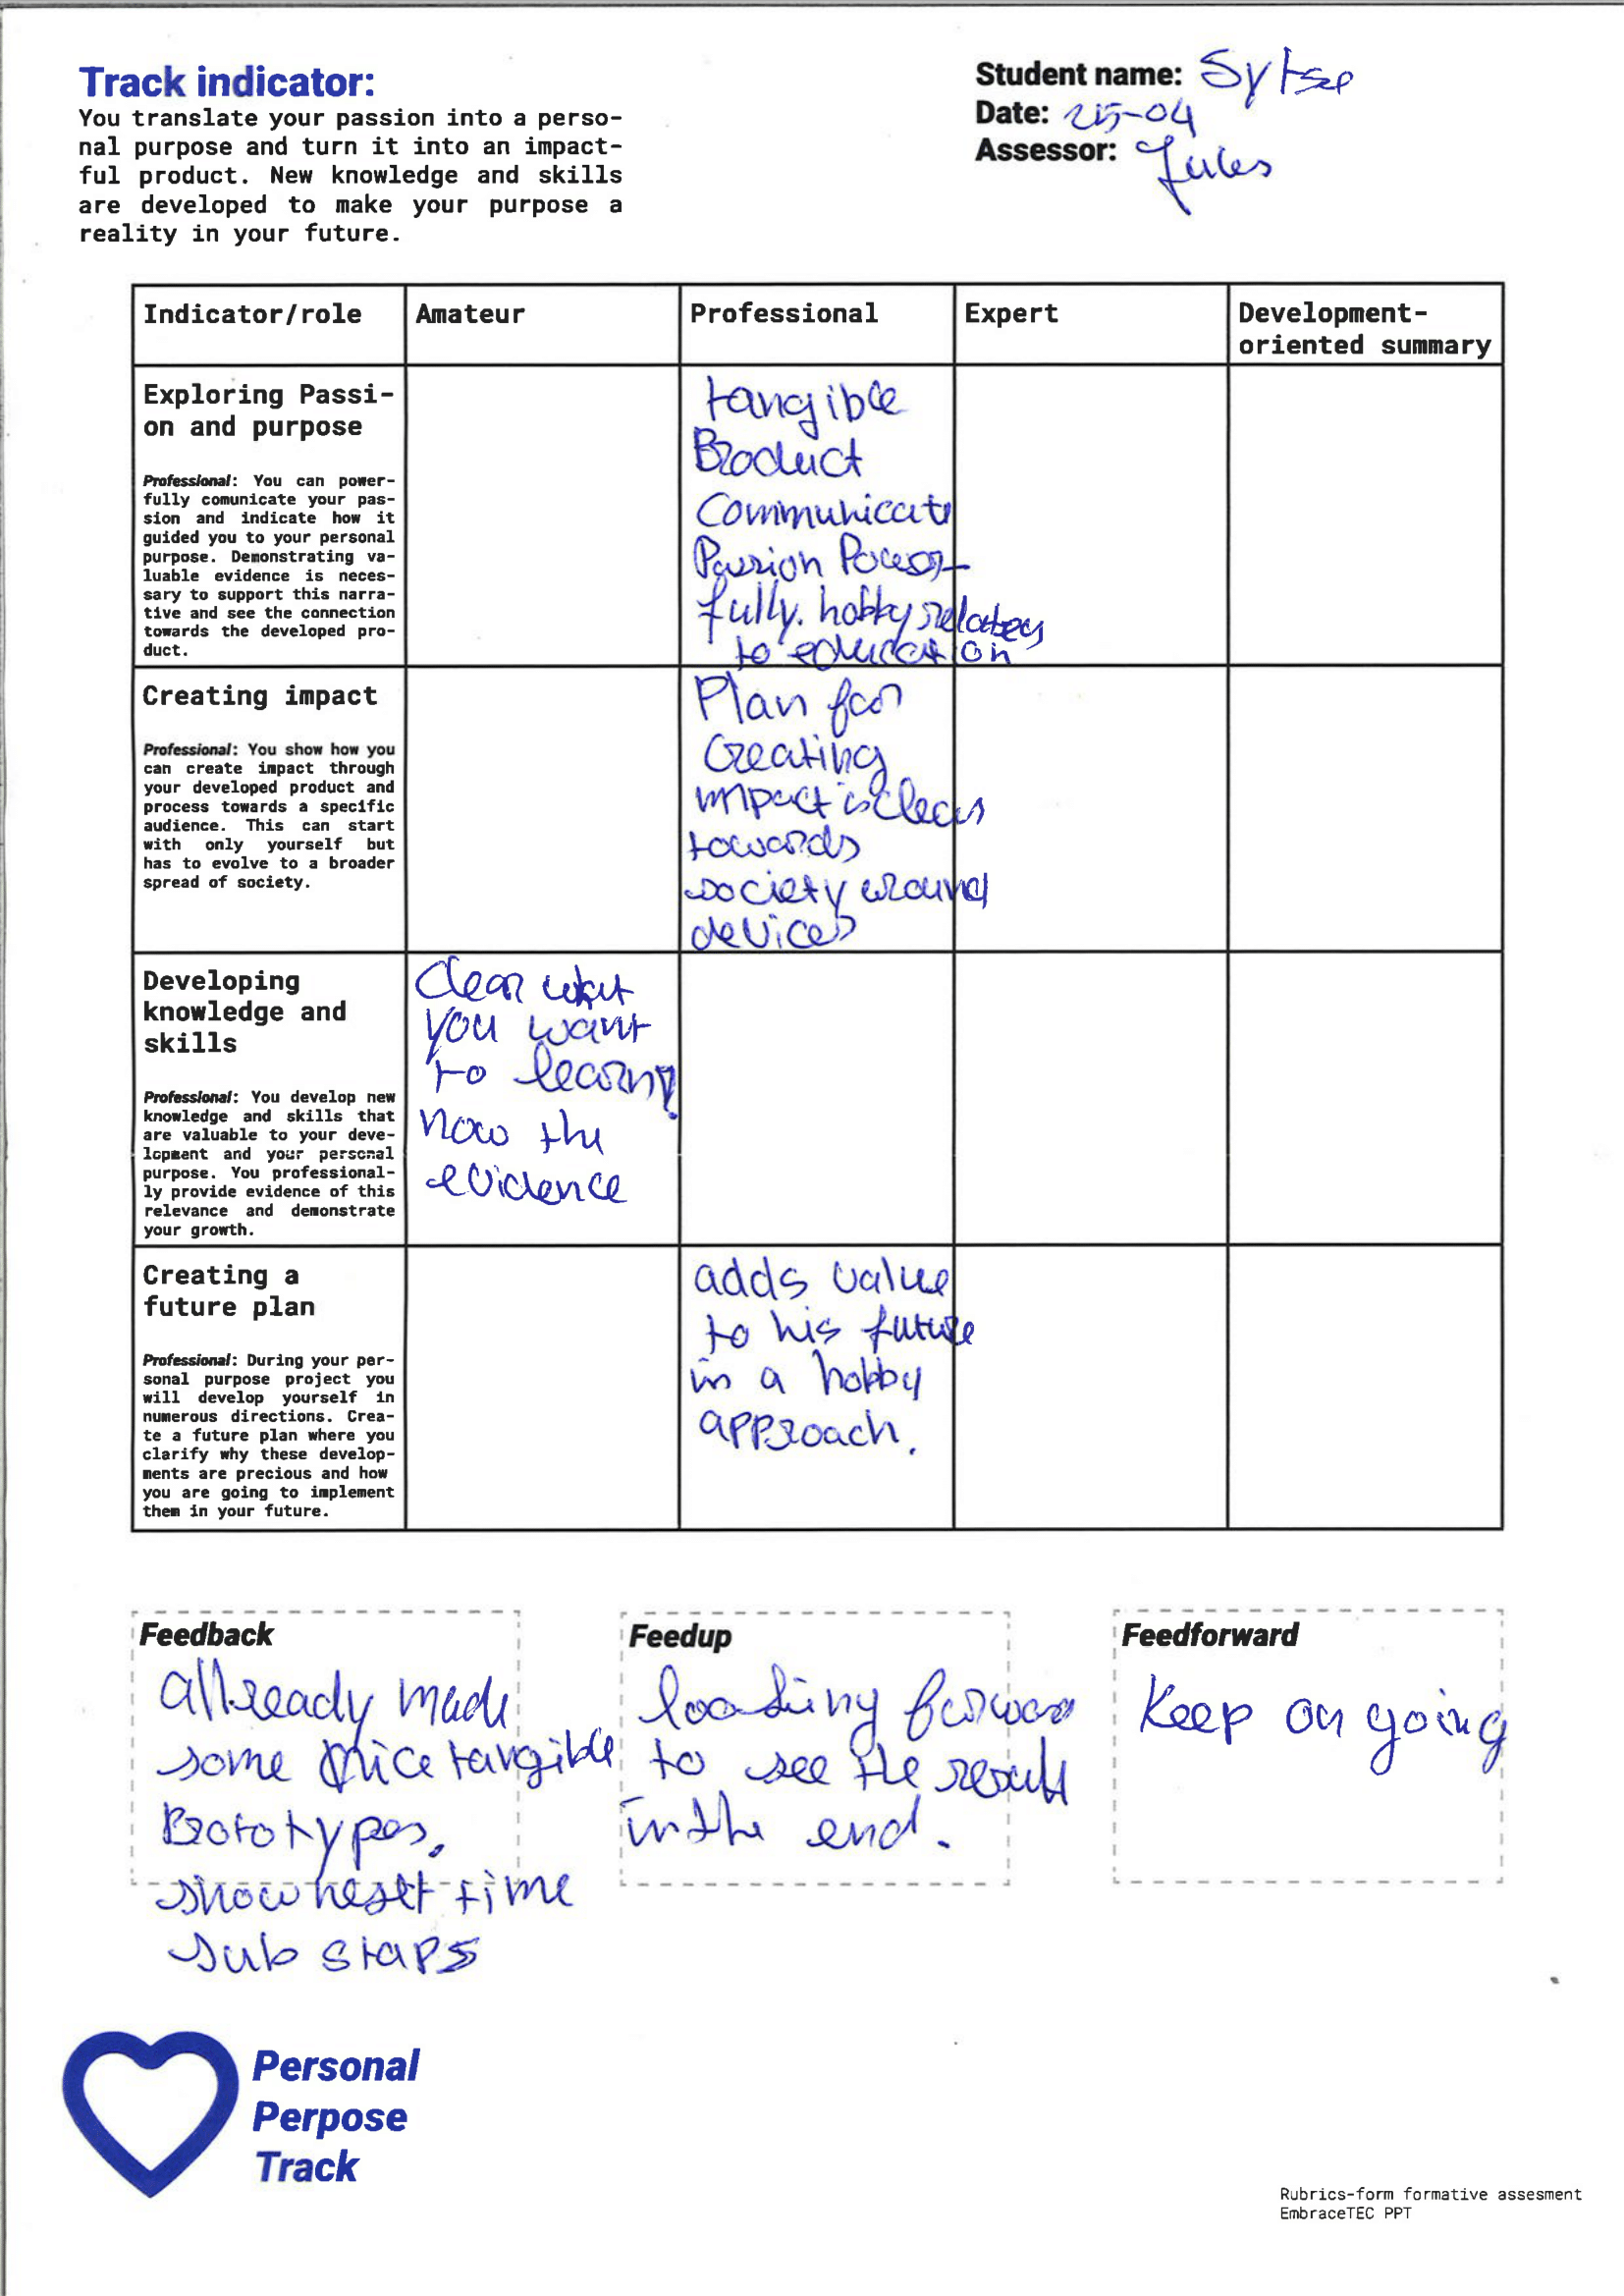 Track indicator:
You translate your passion into a perso-
nal purpose and turn it into an impact-
ful product. New knowledge and skills
are developed to make your purpose a
reality in your future.
Student name: Sytse
Date: 25-04
Assessor: Jules
Indicator/role Amateur Professional Expert Development-
oriented summary
Exploring Passi-
on and purpose
Professional: You can power-
fully comunicate your pas-
sion and indicate how it
guided you to your personal
purpose. Demonstrating va-
luable evidence is neces-
sary to support this narra-
tive and see the connection
towards the developed pro-
duct.
tangible
Product
Communicate
Passion Power-
fully. hobby relates
to education
Creating impact
Professional: You show how you
can create impact through
your developed product and
process towards a specific
audience. This can start
with only yourself but
has to evolve to a broader
spread of society.
Plan for
Creating
impact is clear
towards
society around
devices
Developing
knowledge and
skills
Professional: You develop new
knowledge and skills that
are valuable to your deve-
lopment and your personal
purpose. You professional-
ly provide evidence of this
relevance and demonstrate
your growth.
Clear what
you want
to learn,
now the
evidence
Creating a
future plan
Professional: During your per-
sonal purpose project you
will develop yourself in
numerous directions. Crea-
te a future plan where you
clarify why these develop-
ments are precious and how
you are going to implement
them in your future.
adds value
to his future
in a hobby
approach.
Feedback
allready made
some nice tangible
Prototypes.
show next time
sub staps
Feedup
looking forward
to see the result
in the end.
Feedforward
Keep on going
Personal
Perpose
Track
Rubrics-form formative assesment
EmbraceTEC PPT